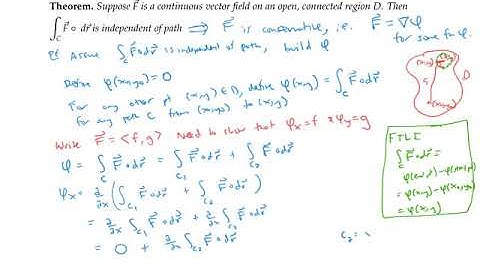 Theorem. Suppose F⃗ is a continuous vector field on an open, connected region D. Then
∫_C F⃗ ∘ dr⃗ is independent of path ⟹ F⃗ is conservative, i.e. F⃗ = ∇φ
for some fn φ.
Pf Assume ∫_C F⃗∘dr⃗ is independent of path, build φ
Define φ(x₀,y₀) = 0
For any other pt (x,y) ∈ D, define φ(x,y) = ∫_C F⃗∘dr⃗
for any path C from (x₀,y₀) to (x,y)
Write F⃗ = <f,g> Need to show that φₓ = f & φ_y = g
φ = ∫_C F⃗∘dr⃗ = ∫_C₁ F⃗∘dr⃗ + ∫_C₂ F⃗∘dr⃗
φₓ = ∂/∂x ( ∫_C₁ F⃗∘dr⃗ + ∫_C₂ F⃗∘dr⃗ )
= ∂/∂x ∫_C₁ F⃗∘dr⃗ + ∂/∂x ∫_C₂ F⃗∘dr⃗
= 0 + ∂/∂x ∫_C₂ F⃗∘dr⃗
C₂ :
(x,y)
D
(x₀,y₀)
FTLI
∫_C F⃗∘dr⃗ =
= φ(x,y) - φ(x₀,y₀)
= φ(x,y)